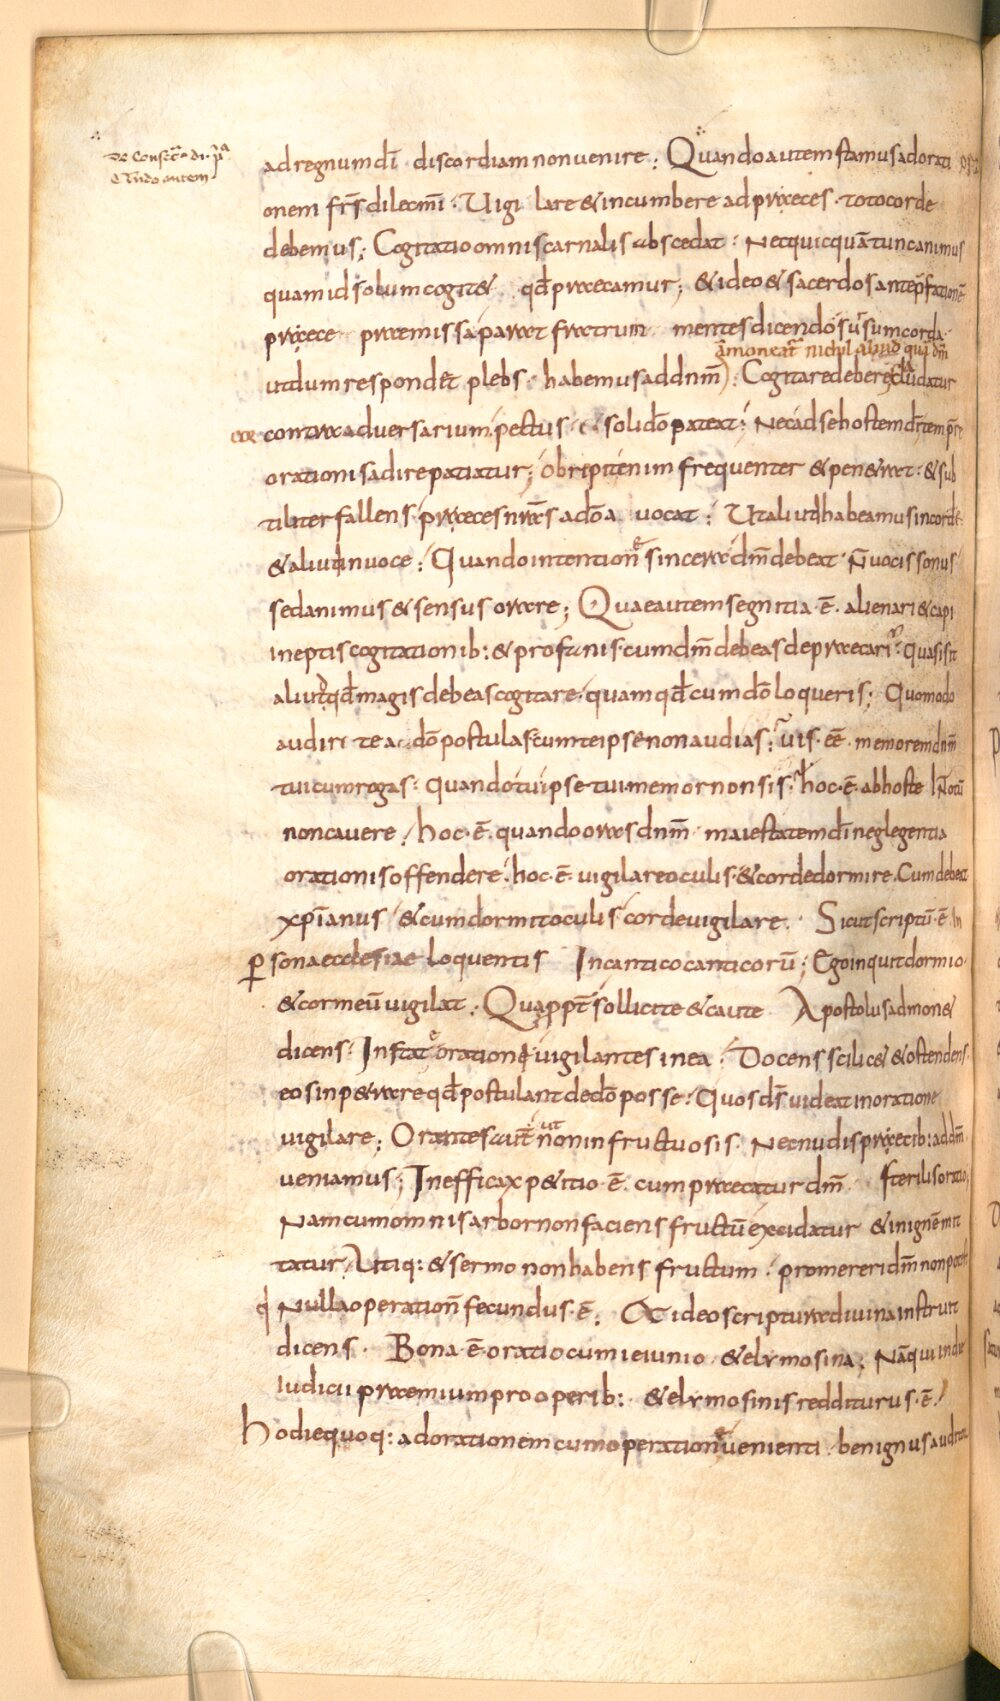 De Consecr. di. pa
Quando autem
ad regnum dī discordiam non venire; Quando autem stamus ad orati
onem frs̄ dilecmī. Uigi lare & incumbere ad præces. toto corde
debemus; Cogitatio omnis carnalis abscedat. Nec quicquā tunc animus
quam id solum cogit& qđ præcamur; & ideo & sacerdos ante p̄fationē
præce præmissa parat fratrum mentes dicendo sursum corda.
āmoneat̄ nichil aliud qui dm̄
ut dum respondet plebs. habemus ad dnm̄. Cogitare debere cludatur
contra adversarium pectus & soli dō pateat; Nec ad se hostem dī tempore
orationis adire patiatur; obrepit enim frequenter & pen&rat. & sub
tiliter fallens præces nr̄as a dō a uocat; Ut aliud habeamus in corde
& aliud in uoce; Quando intentione sincera dm̄ debeat. N̄ uocis sonus
sed animus & sensus orare; Quae autem segnitia. ē. alienari & capi
ineptis cogitationib: & profanis. cum dm̄ debeas depraecari. Quasi sit
aliud qđ magis debeas cogitare. quam qđ cum dō loqueris; Quomodo
audiri te a dō postulas. cum te ipse non audias; uis. eē. memorem dnm̄
tui cum rogas. quando tu ipse tui memor non sis. hoc. ē. ab hoste in totū
non cavere. hoc. ē. quando oras dnm̄ maiestatem dī neglegentia
orationis offendere. hoc. ē. uigilare oculis. & corde dormire. Cum debeat
xp̄ianus & cum dormit oculis corde uigilare. Sicut scriptū. ē. in
ꝑsona ecclesiae loquentis In cantico canticorū; Ego inquit dormio.
& cor meū uigilat. Quap̄pt̄ sollicite & caute Apostolus admon&
dicens. Instate oratione uigilantes in ea. Docens scilic& & ostendens
eos inp&rare qđ postulant de dō posse. Quos ds̄ uideat in oratione
uigilare; Orantes aut̄ ut non infructuosis. Nec nudis præcib: ad dm̄
ueniamus; Inefficax p&itio. ē. cum præcatur dm̄ sterilis oratio;
Nam cum omnis arbor non faciens fructū excidatur & in ignē mit
tatur. Utiq: & sermo non habens fructum. promereri dm̄ non potest
q̇ Nulla operation̄ fecundus. ē. & ideo scriptura diuina instruit
dicens. Bona. ē oratio cum ieiunio & elymosina. Nā qui in die
iudicii praemium pro operib: & elymosinis redditurus. ē.
hodie quoq: ad orationem cum operatione uenienti. benignus auditor